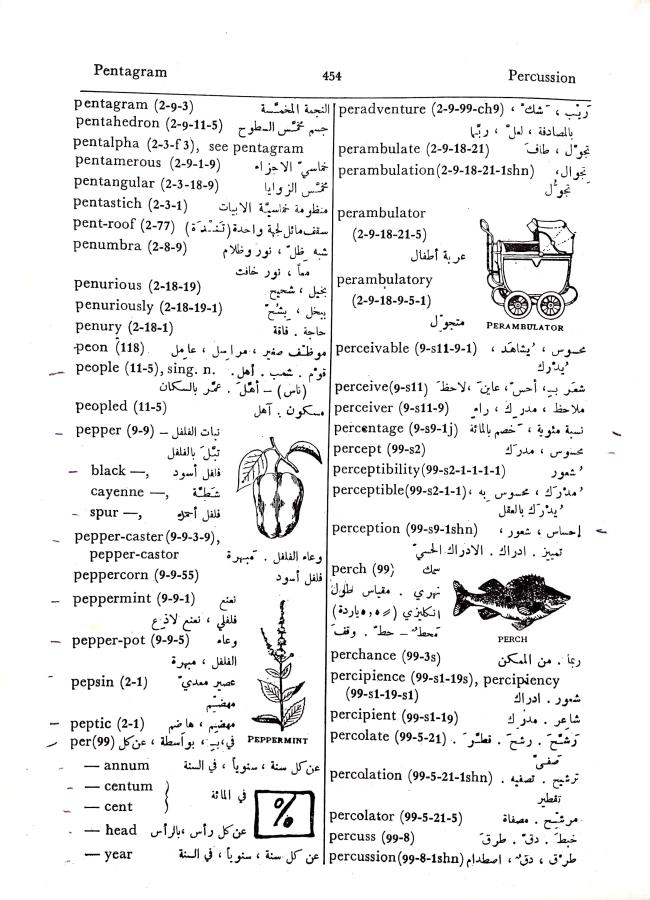 Pentagram 454 Percussion
pentagram (2-9-3) النجمة المخمّسة
pentahedron (2-9-11-5) جسم مخمّس السطوح
pentalpha (2-3-f3), see pentagram
pentamerous (2-9-1-9) خماسيّ الاجزاء
pentangular (2-3-18-9) مخمّس الزوايا
pentastich (2-3-1) منظومة خماسيّة الابيات
pent-roof (2-77) سقف مائل لجهة واحدة
penumbra (2-8-9) شبه ظلّ ، نور وظلام
معاً ، نور خافت
penurious (2-18-19) بخيل ، شحيح
penuriously (2-18-19-1) ببخل ، بشُحّ
penury (2-18-1) حاجة . فاقة
peon (118) موظّف صغير ، مراسل ، عامل
people (11-5), sing. n. قوم . شعب . أهل .
(ناس) – أهّل . عمّر بالسكان
peopled (11-5) مسكون . آهل
pepper (9-9) – نبات الفلفل
تبّل بالفلفل
black —, فلفل أسود
cayenne —, شطّة
spur —, فلفل أحمر
pepper-caster (9-9-3-9),
pepper-castor وعاء الفلفل . مبهرة
peppercorn (9-9-55) فلفل أسود
peppermint (9-9-1) نعنع
فلفلي ، نعنع لاذع
pepper-pot (9-9-5) وعاء
الفلفل ، مبهرة
pepsin (2-1) عصير معديّ
مهضّم
peptic (2-1) مهضّم ، هاضم
PEPPERMINT
per (99) في ، بـ ، بواسطة ، عن كل
— annum عن كل سنة ، سنوياً ، في السنة
— centum
— cent في المائة
%
— head عن كل رأس ، بالرأس
— year عن كل سنة ، سنوياً ، في السنة
peradventure (2-9-99-ch9) رَيْب ، شك ،
بالمصادفة ، لعلّ ، ربّما
perambulate (2-9-18-21) تجوّل ، طاف
perambulation (2-9-18-21-1shn) تجوال ،
تجوّل
perambulator
(2-9-18-21-5)
عربة أطفال
perambulatory
(2-9-18-9-5-1)
متجوّل
PERAMBULATOR
perceivable (9-s11-9-1) محسوس ، يُشاهَد ،
يُدرَك
perceive (9-s11) شعَر بـ ، أحسّ ، عاين ، لاحظ
perceiver (9-s11-9) ملاحظ ، مدرك ، راءٍ
percentage (9-s9-1j) نسبة مئوية ، خصم بالمائة
percept (99-s2) محسوس ، مدرَك
perceptibility (99-s2-1-1-1-1) شعور
perceptible (99-s2-1-1) مُدرَك ، محسوس به ،
يُدرَك بالعقل
perception (99-s9-1shn) إحساس ، شعور ،
تمييز . ادراك . الادراك الحسيّ
perch (99) سمك
نهري . مقياس طول
انكليزي (= ٥,٥ ياردة)
محطّ – حطّ . وقف
PERCH
perchance (99-3s) ربما . من الممكن
percipience (99-s1-19s), percipiency
(99-s1-19-s1) شعور . ادراك
percipient (99-s1-19) شاعر . مدرك
percolate (99-5-21) رَشَّح . رشح . قطّر .
صفّى
percolation (99-5-21-1shn) ترشيح . تصفيه .
تقطير
percolator (99-5-21-5) مرشّح . مصفاة
percuss (99-8) خبط . دقّ . طرق
percussion (99-8-1shn) طرْق ، دقّ ، اصطدام